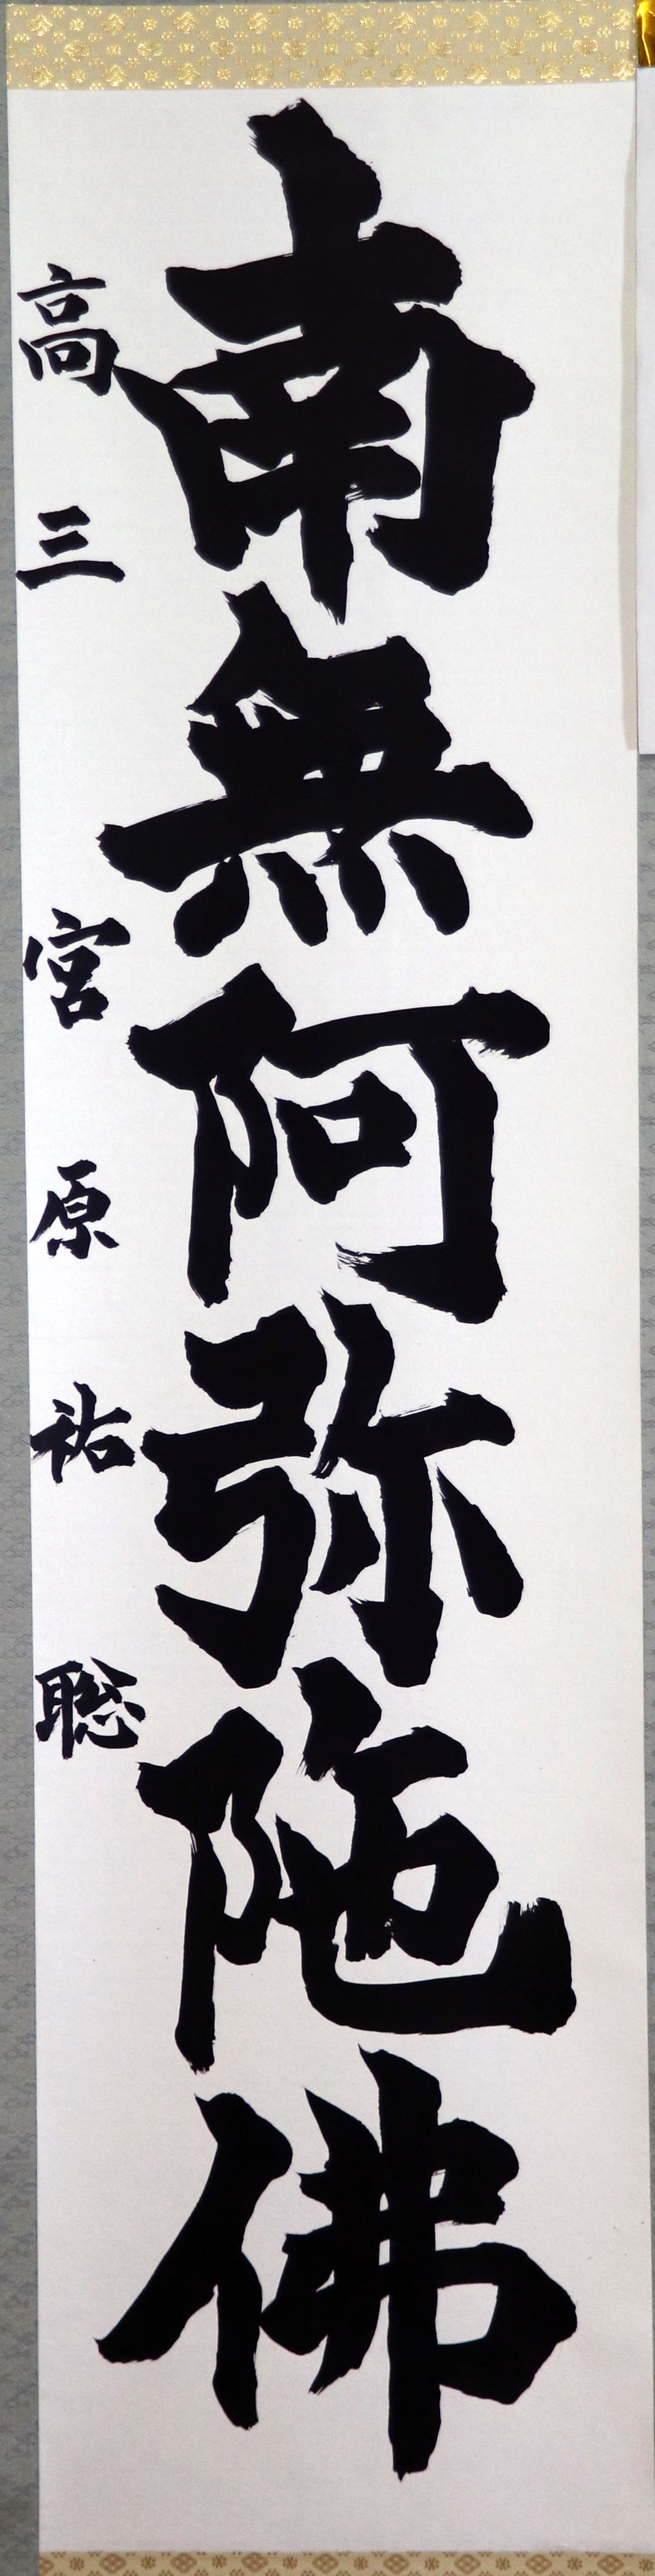 南無阿弥陁佛
高三 宮原祐聡